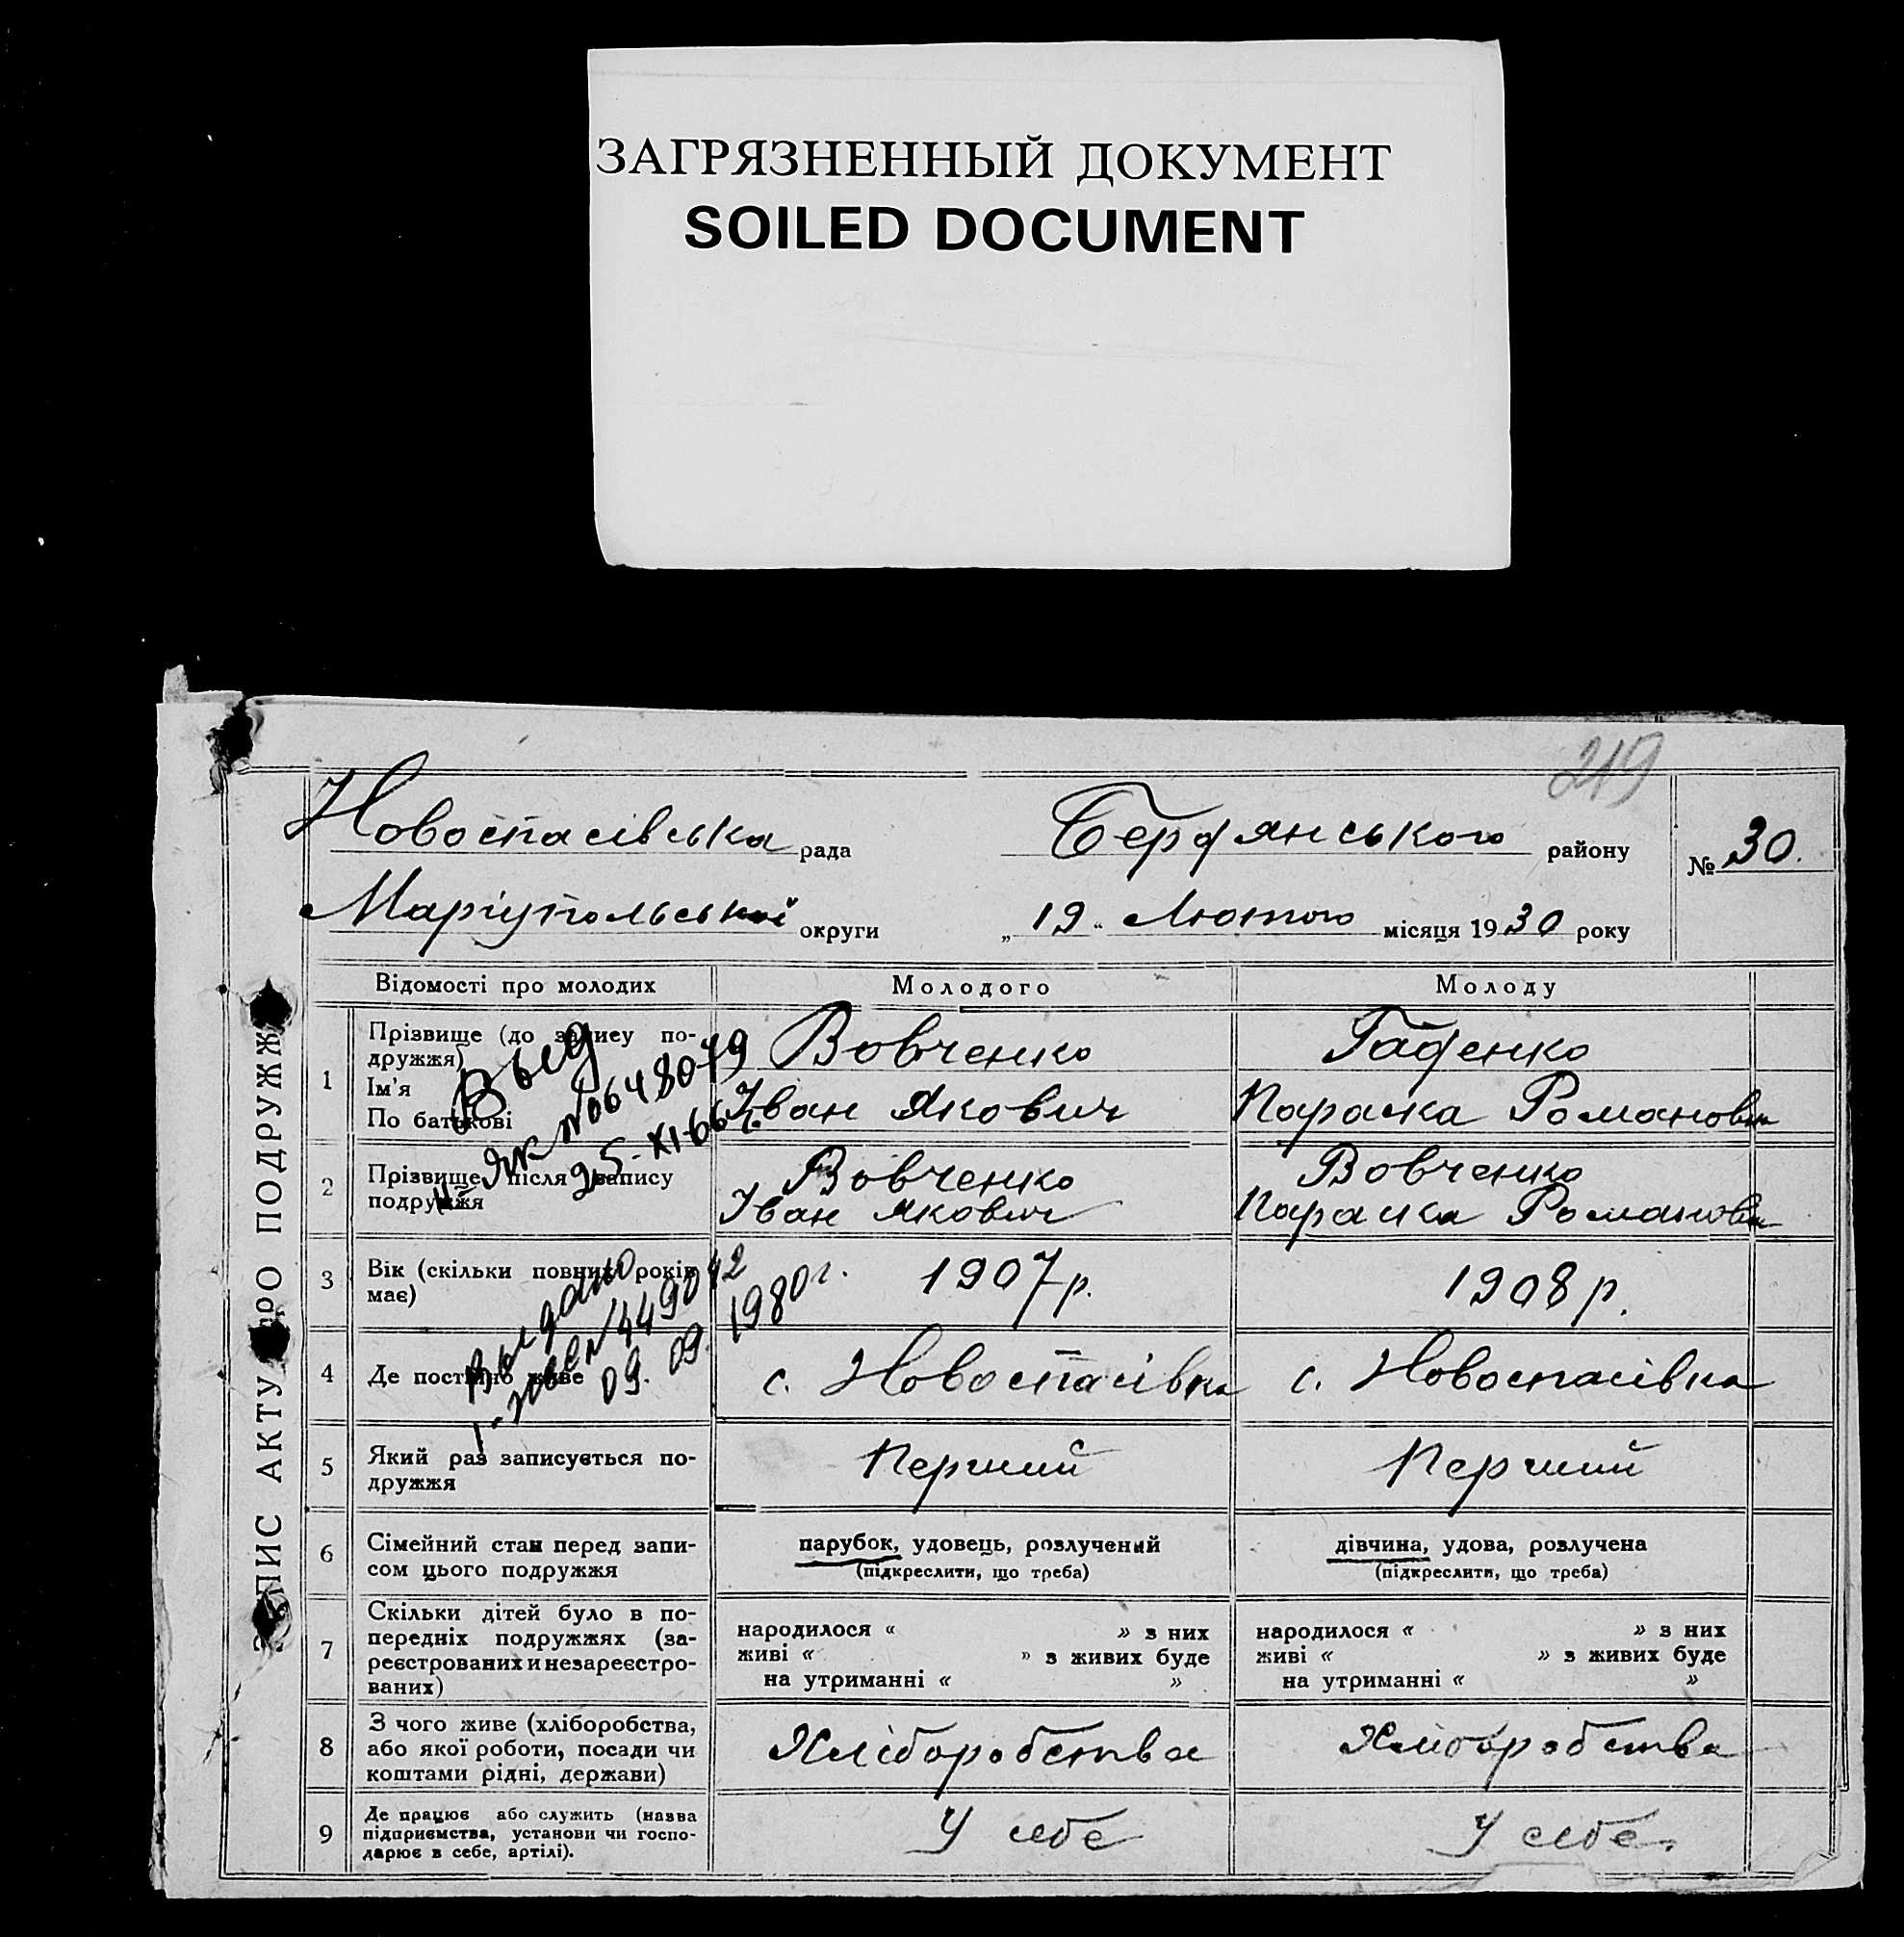 ЗАГРЯЗНЕННЫЙ ДОКУМЕНТ
SOILED DOCUMENT
219
Новоспасівська рада Бердянського району № 30.
Маріупольської округи „19“ Лютого місяця 1930 року
ЗАПИС АКТУ ПРО ПОДРУЖЖЯ
Відомості про молодих Молодого Молоду
1 Прізвище (до запису по-
дружжя)
Ім'я
По батькові
Вовченко
Іван Якович
Гаденко
Параска Романовна
Выд
ЯК №0648079
25-XI-66 г.
2 Прізвище після запису
подружжя
Вовченко
Іван Якович
Вовченко
Параска Романовна
3 Вік (скільки повних років
має)
1907 р.
1908 р.
Выдано
№ 449042
09. 09. 1980 г.
4 Де постійно живе
с. Новоспасівка
с. Новоспасівка
5 Який раз записується по-
дружжя
Перший
Перший
6 Сімейний стан перед запи-
сом цього подружжя
парубок, удовець, розлучений
(підкреслити, що треба)
дівчина, удова, розлучена
(підкреслити, що треба)
7 Скільки дітей було в по-
передніх подружжях (за-
реєстрованих и незареєстро-
ваних)
народилося « » з них
живі « » з живих буде
на утриманні « »
народилося « » з них
живі « » з живих буде
на утриманні « »
8 З чого живе (хліборобства,
або якої роботи, посади чи
коштами рідні, держави)
Хліборобства
Хліборобства
9 Де працює або служить (назва
підприємства, установи чи госпо-
дарює в себе, артілі).
У себе
У себе.